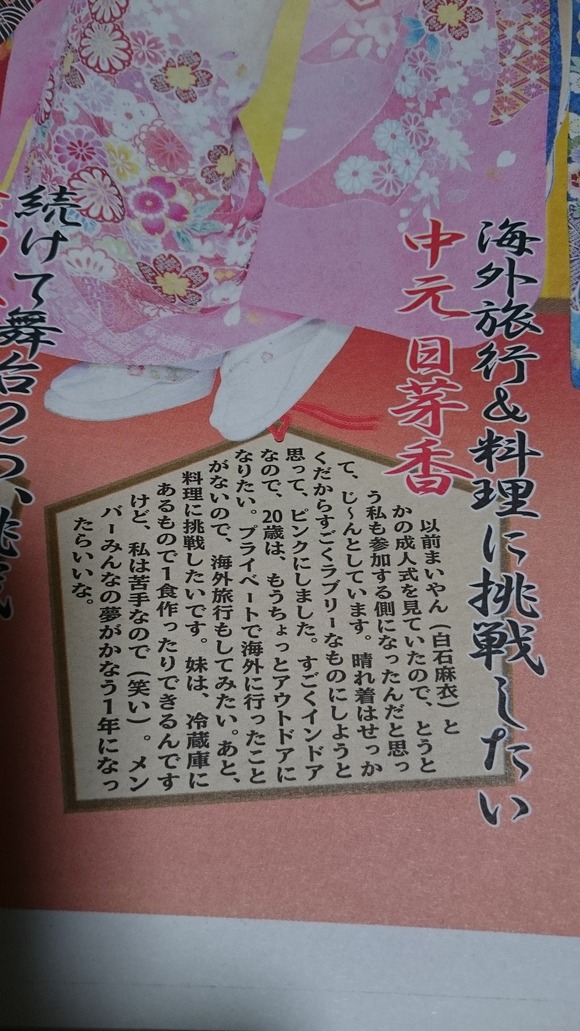 海外旅行&料理に挑戦したい
中元 日芽香
以前まいやん(白石麻衣)と
かの成人式を見ていたので、とうと
う私も参加する側になったんだと思っ
て、じ〜んとしています。晴れ着はせっか
くだからすごくラブリーなものにしようと
思って、ピンクにしました。すごくインドア
なので、20歳は、もうちょっとアウトドアに
なりたい。プライベートで海外に行ったこと
がないので、海外旅行もしてみたい。あと、
料理に挑戦したいです。妹は、冷蔵庫に
あるもので1食作ったりできるんです
けど、私は苦手なので(笑い)。メン
バーみんなの夢がかなう1年になっ
たらいいな。
続けて舞台